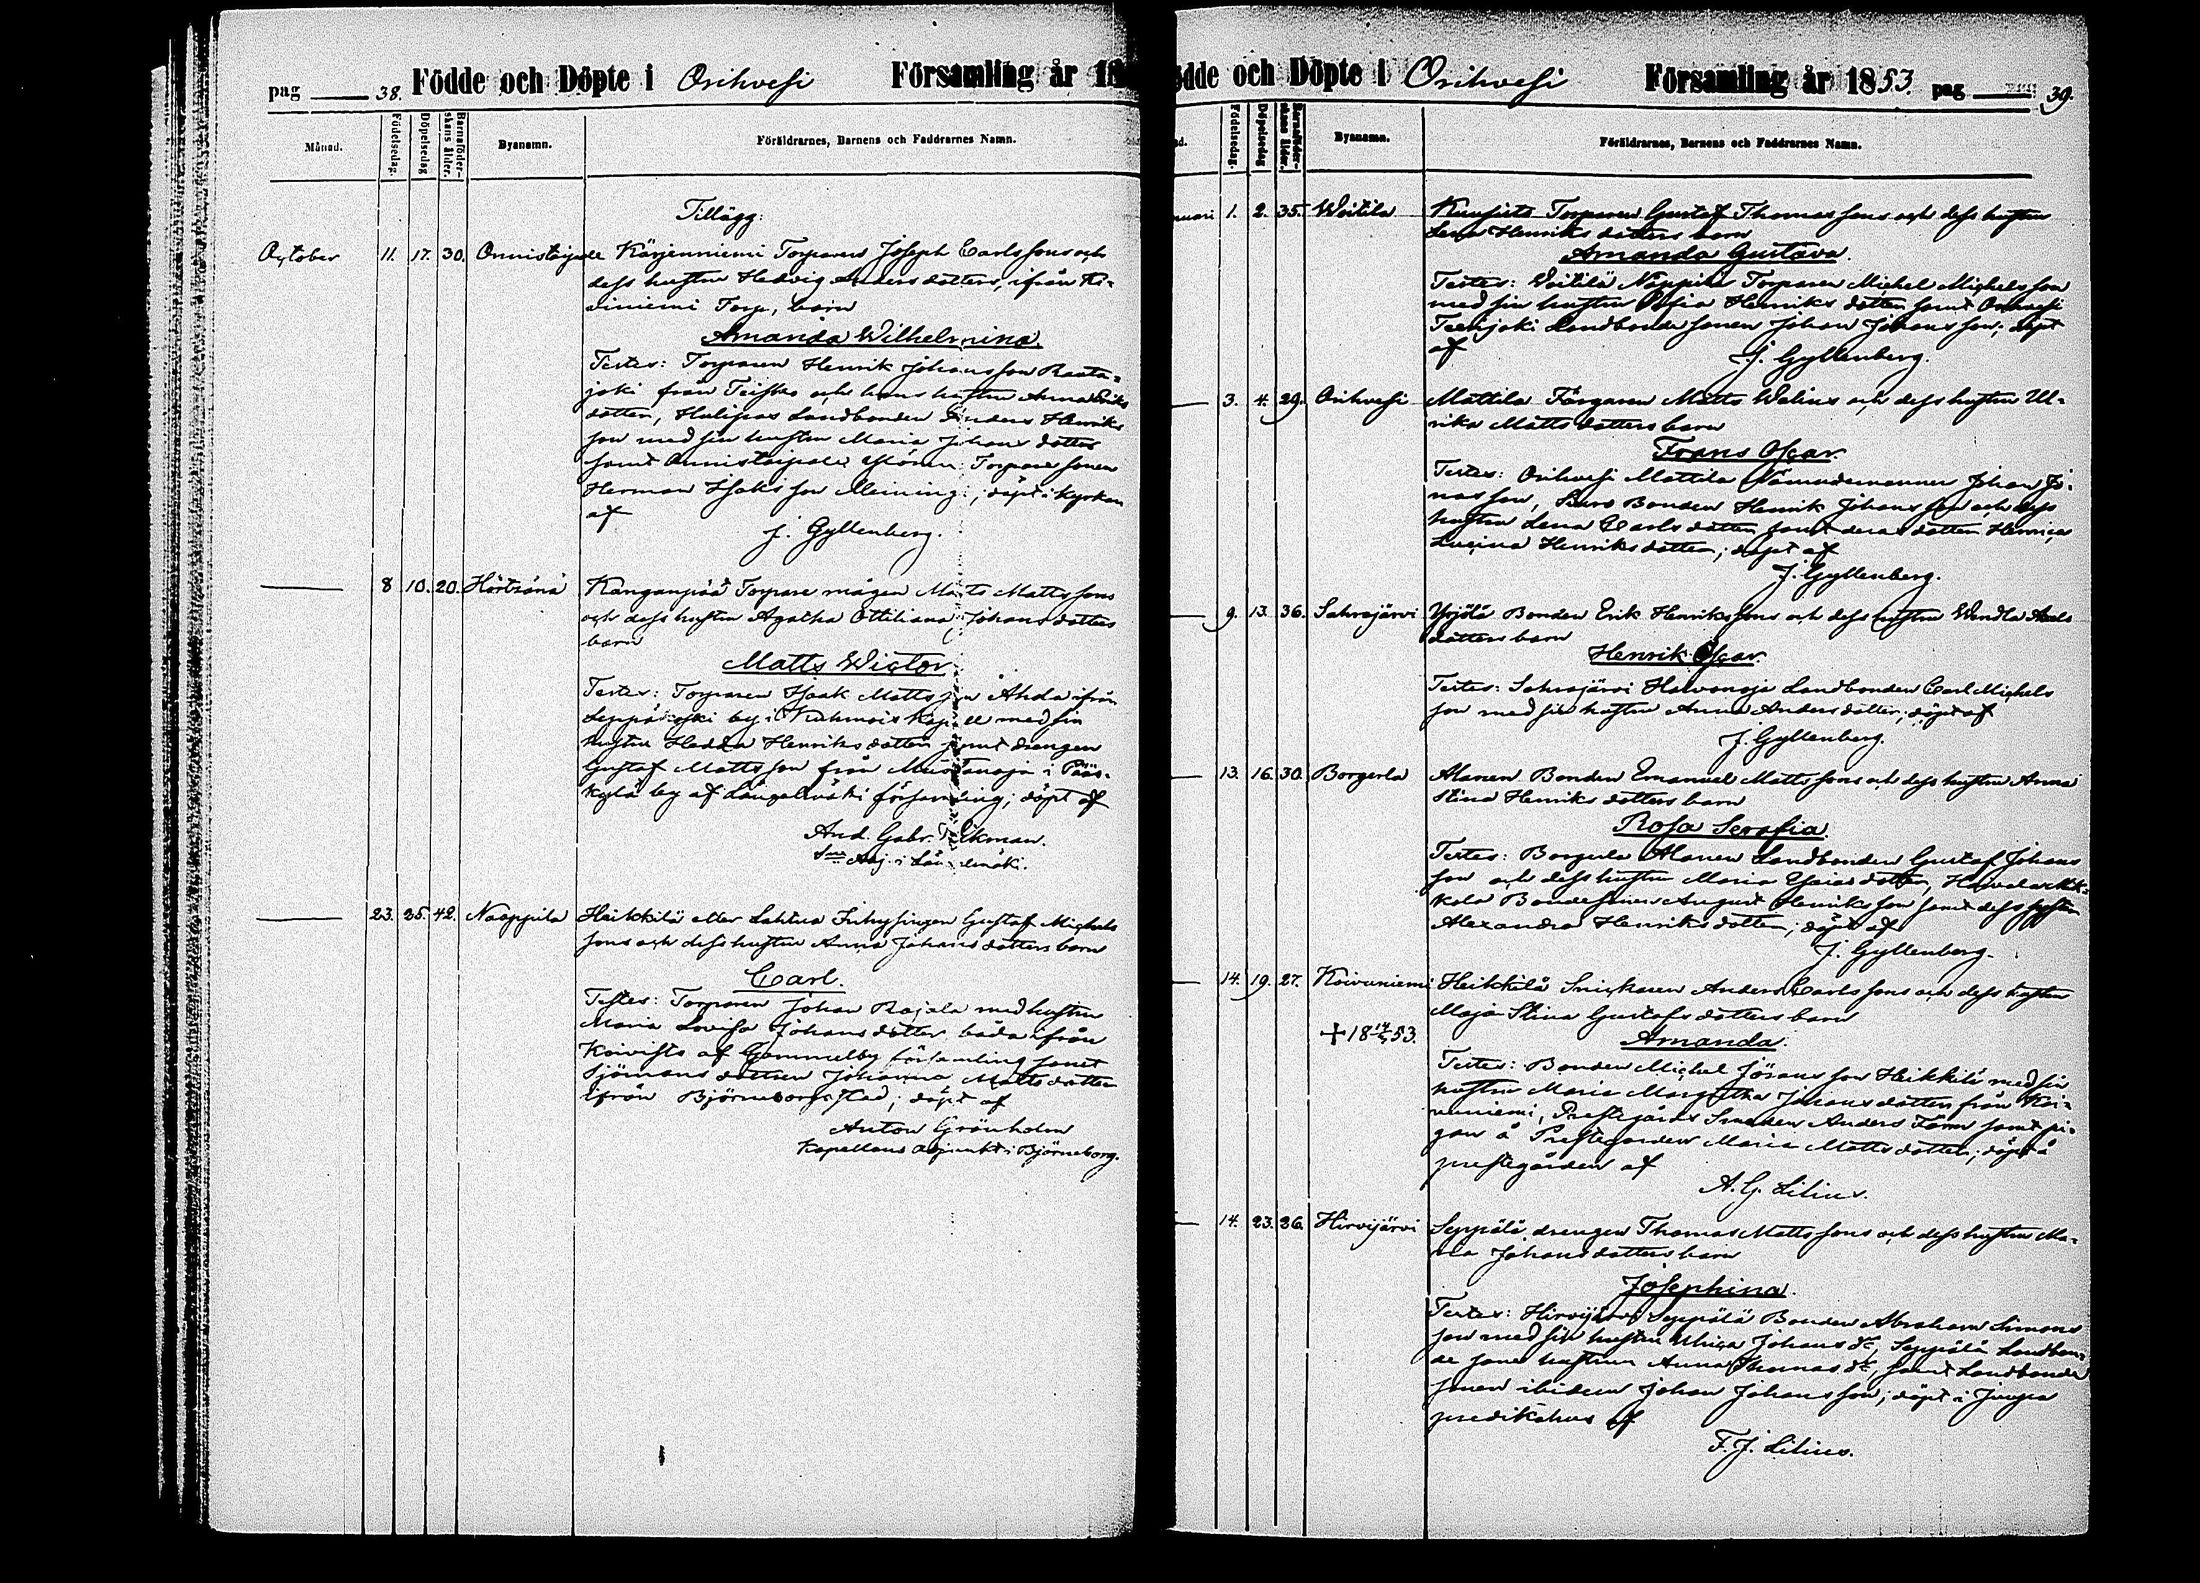 pag 38. Födde och Döpte i Orihvesi Församling år 18
Månad. Födelsedag. Döpelsedag Barnaföderskans ålder. Byanamn. Föräldrarnes, Barnens och Faddrarnes Namn.
Tillägg:
October 11. 17. 30. Onnistaipale Kärjenniemi Torparens Joseph Carlssons och
dess hustru Hedvig Andersdotters, ifrån
Torp, barn
Amanda Wilhelmina.
Testes: Torparen Henrik Johansson Raata-
joki från Teisko och hans hustru Anna Eriks
dotter, Landbonden Anders Henriks
son med sin hustru Maria Johansdotter
samt Onnistaipale Torpare sonen
Herman Isaksson; döpt i kyrkan
af
J. Gyllenberg.
8 10. 20. Kanganpää Torpare mågen Matts Mattssons
och dess hustru Agatha Ottiliana Johansdotters
barn
Matts Wictor
Testes: Torparen Isaak Mattsson Ahda ifrån
Leppäkoski by i Kuhmois Kapell med sin
hustru Hedda Henriksdotter samt drengen
Gustaf Mattsson från i Pääs-
kylä by af Längelmäki församling; döpt af
And. Gabr.
Adj. i
23. 25. 42. Naappila Heikkilä eller Lahtua Inhysingen Gustaf Michels
sons och dess hustru Anna Johansdotters barn
Carl.
Testes: Torparen Johan Rajala med hustru
Maria Lovisa Johansdotter båda ifrån
Koivisto af Gammelby församling samt
Sjömans dottren Johanna Mattsdotter
ifrån Björneborgs stad; döpt af
Anton Grönholm
Kapellans adjunkt i Björneborg.
ödde och Döpte i Orihvesi Församling år 1853. pag 39.
d. Födelsedag. Döpelsedag Barnaföderskans ålder. Byanamn. Föräldrarnes, Barnens och Faddrarnes Namn.
nuari 1. 2. 35. Woitila Torparen Gustaf Thomassons och dess hustru
Lena Henriksdotters barn
Amanda Gustava.
Testes: Woitilä Torparen Michel Michelsson
med sin hustru Sofia Henriksdotter samt Orihvesi
Landbonde sonen Johan Johansson; döpt
af
J. Gyllenberg.
3. 4. 29. Orihvesi Mattila Färgaren Matts Welins och dess hustru Ul-
rika Mattsdotters barn
Frans Oscar.
Testes: Orihvesi Mattila Nämndemannen Johan Jo-
nasson, Bonden Henrik Johansson och dess
hustru Lena Carlsdotter samt deras dotter Henrica
Lucina Henriksdotter; döpt af
J. Gyllenberg.
9. 13. 36. Sahrajärvi Yrjölä Bonden Erik Henrikssons och dess hustru Wendla
dotters barn
Henrik Oscar.
Testes: Sahrajärvi Landbonden Carl Michels
son med sin hustru Anna Andersdotter; döpt af
J. Gyllenberg.
13. 16. 30. Borgerla Alanen Bonden Emanuel Mattssons och dess hustru Anna
Stina Henriksdotters barn
Rosa Serafia.
Testes: Borgerla Alanen Landbonden Gustaf Johans
son och dess hustru Maria Esaiasdotter,
Bondesonen August Henriksson samt dess hustru
Alexandra Henriksdotter; döpt af
J. Gyllenberg.
14. 19. 27. Koivuniemi Heikkilä Snickaren Anders Carlssons och dess hustru
Maja Stina Gustafsdotters barn
+ 18 53. Amanda.
Testes: Bonden Michel Göransson Heikkilä med sin
hustru Maria Margetha Johansdotter från Koi-
vuniemi, Prestgårds Anders samt pi-
gan å Prestgården Maria Mattsdotter; döpt å
prestgården af
A. G. Lilius.
14. 23. 26. Hirvijärvi Seppälä drengen Thomas Mattssons och dess hustru Ma-
ria Johansdotters barn
Josephina.
Testes: Hirvijärvi Seppälä Bonden Abraham Simons
son med sin hustru Ulrica Johans dr, Seppälä Landbon-
de sone hustrun Anna Thomas dr, samt Landbonde
sonen ibidem Johan Johansson; döpt i
predikohus af
F. J. Lilius.